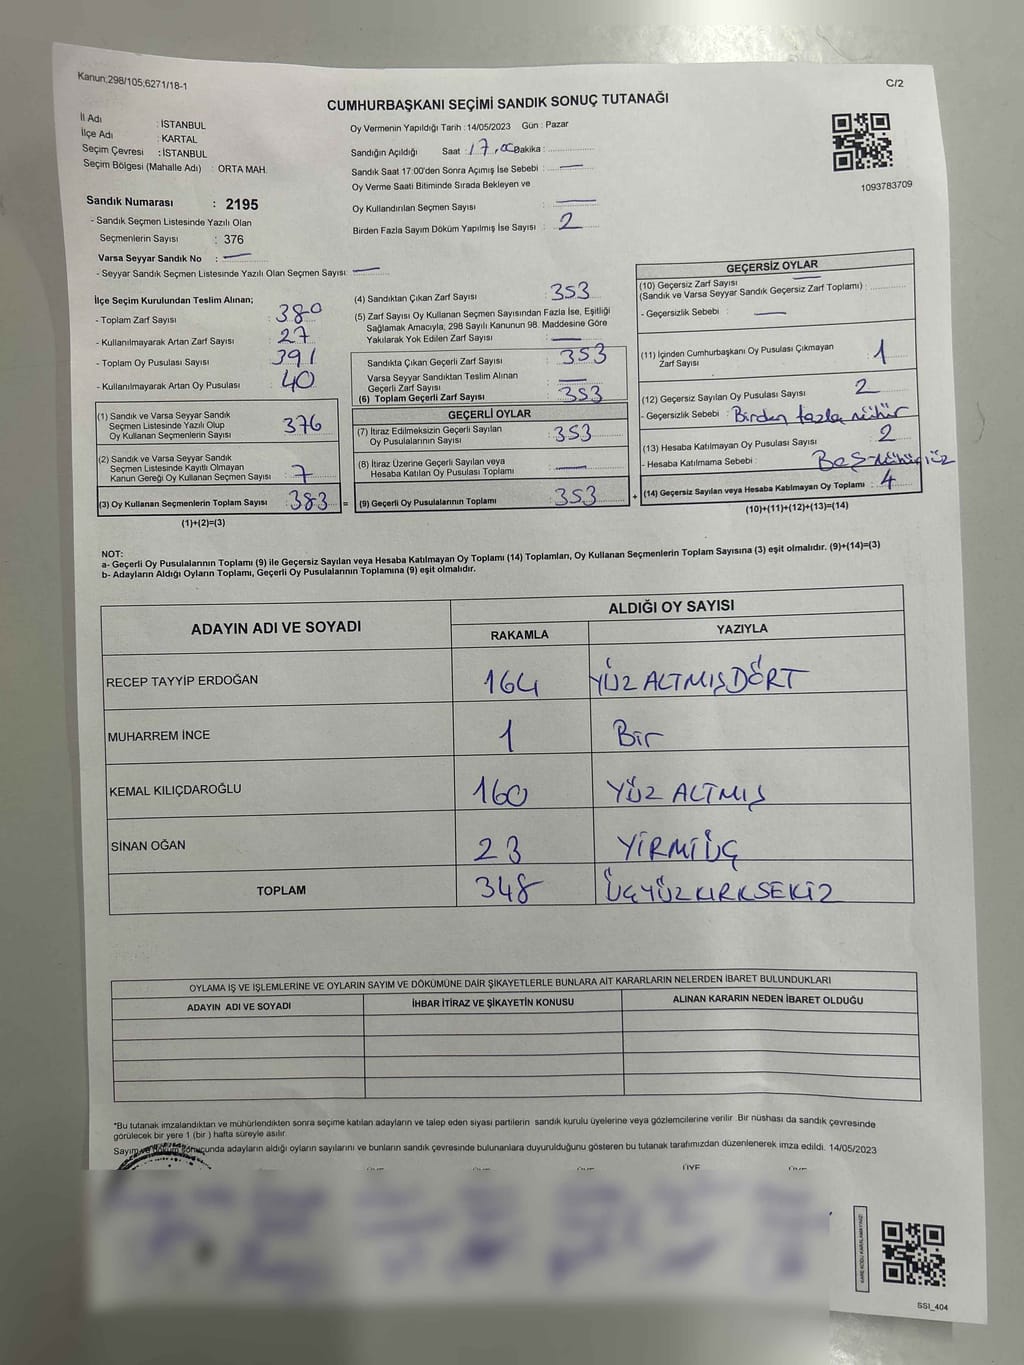 Kanun;298/105;6271/18-1
C/2
CUMHURBAŞKANI SEÇİMİ SANDIK SONUÇ TUTANAĞI
İl Adı : İSTANBUL
İlçe Adı : KARTAL
Seçim Çevresi : İSTANBUL
Seçim Bölgesi (Mahalle Adı) : ORTA MAH.
Sandık Numarası : 2195
- Sandık Seçmen Listesinde Yazılı Olan
Seçmenlerin Sayısı : 376
Varsa Seyyar Sandık No : —
- Seyyar Sandık Seçmen Listesinde Yazılı Olan Seçmen Sayısı: —
Oy Vermenin Yapıldığı Tarih : 14/05/2023 Gün : Pazar
Sandığın Açıldığı Saat : 17.00 Dakika :
Sandık Saat 17:00'den Sonra Açımış İse Sebebi : —
Oy Verme Saati Bitiminde Sırada Bekleyen ve
Oy Kullandırılan Seçmen Sayısı : —
Birden Fazla Sayım Döküm Yapılmış İse Sayısı : 2
1093783709
İlçe Seçim Kurulundan Teslim Alınan;
- Toplam Zarf Sayısı : 380
- Kullanılmayarak Artan Zarf Sayısı : 27
- Toplam Oy Pusulası Sayısı : 391
- Kullanılmayarak Artan Oy Pusulası : 40
(1) Sandık ve Varsa Seyyar Sandık
Seçmen Listesinde Yazılı Olup
Oy Kullanan Seçmenlerin Sayısı : 376
(2) Sandık ve Varsa Seyyar Sandık
Seçmen Listesinde Kayıtlı Olmayan
Kanun Gereği Oy Kullanan Seçmen Sayısı : 7
(3) Oy Kullanan Seçmenlerin Toplam Sayısı : 383 =
(1)+(2)=(3)
(4) Sandıktan Çıkan Zarf Sayısı : 353
(5) Zarf Sayısı Oy Kullanan Seçmen Sayısından Fazla İse, Eşitliği
Sağlamak Amacıyla; 298 Sayılı Kanunun 98. Maddesine Göre
Yakılarak Yok Edilen Zarf Sayısı : —
Sandıkta Çıkan Geçerli Zarf Sayısı : 353
Varsa Seyyar Sandıktan Teslim Alınan
Geçerli Zarf Sayısı : —
(6) Toplam Geçerli Zarf Sayısı : 353
GEÇERLİ OYLAR
(7) İtiraz Edilmeksizin Geçerli Sayılan
Oy Pusulalarının Sayısı : 353
(8) İtiraz Üzerine Geçerli Sayılan veya
Hesaba Katılan Oy Pusulası Toplamı : —
(9) Geçerli Oy Pusulalarının Toplamı : 353 +
GEÇERSİZ OYLAR
(10) Geçersiz Zarf Sayısı —
(Sandık ve Varsa Seyyar Sandık Geçersiz Zarf Toplamı) :
- Geçersizlik Sebebi : —
(11) İçinden Cumhurbaşkanı Oy Pusulası Çıkmayan
Zarf Sayısı : 1
(12) Geçersiz Sayılan Oy Pusulası Sayısı : 2
- Geçersizlik Sebebi : Birden fazla mühür
(13) Hesaba Katılmayan Oy Pusulası Sayısı : 2
- Hesaba Katılmama Sebebi :
(14) Geçersiz Sayılan veya Hesaba Katılmayan Oy Toplamı : 4
(10)+(11)+(12)+(13)=(14)
NOT:
a- Geçerli Oy Pusulalarının Toplamı (9) ile Geçersiz Sayılan veya Hesaba Katılmayan Oy Toplamı (14) Toplamları, Oy Kullanan Seçmenlerin Toplam Sayısına (3) eşit olmalıdır. (9)+(14)=(3)
b- Adayların Aldığı Oyların Toplamı, Geçerli Oy Pusulalarının Toplamına (9) eşit olmalıdır.
ADAYIN ADI VE SOYADI
ALDIĞI OY SAYISI
RAKAMLA YAZIYLA
RECEP TAYYİP ERDOĞAN 164 YÜZ ALTMIŞ DÖRT
MUHARREM İNCE 1 Bir
KEMAL KILIÇDAROĞLU 160 YÜZ ALTMIŞ
SİNAN OĞAN 23 YİRMİ ÜÇ
TOPLAM 348 ÜÇYÜZ KIRK SEKİZ
OYLAMA İŞ VE İŞLEMLERİNE VE OYLARIN SAYIM VE DÖKÜMÜNE DAİR ŞİKAYETLERLE BUNLARA AİT KARARLARIN NELERDEN İBARET BULUNDUKLARI
ADAYIN ADI VE SOYADI İHBAR İTİRAZ VE ŞİKAYETİN KONUSU ALINAN KARARIN NEDEN İBARET OLDUĞU
*Bu tutanak imzalandıktan ve mühürlendikten sonra seçime katılan adayların ve talep eden siyasi partilerin sandık kurulu üyelerine veya gözlemcilerine verilir. Bir nüshası da sandık çevresinde
görülecek bir yere 1 (bir ) hafta süreyle asılır.
Sayım ve döküm sonucunda adayların aldığı oyların sayılarını ve bunların sandık çevresinde bulunanlara duyurulduğunu gösteren bu tutanak tarafımızdan düzenlenerek imza edildi. 14/05/2023
ÜYE ÜYE ÜYE ÜYE ÜYE
SSI_404